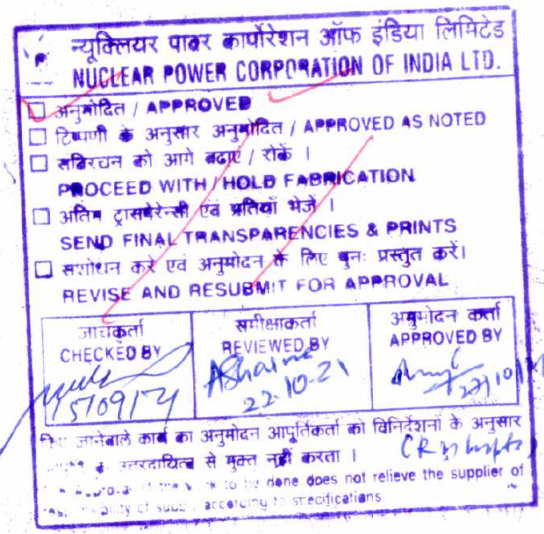 न्यूक्लियर पावर कार्पोरेशन ऑफ इंडिया लिमिटेड
NUCLEAR POWER CORPORATION OF INDIA LTD.
अनुमोदित / APPROVED
टिप्पणी के अनुसार अनुमोदित / APPROVED AS NOTED
संविरचन को आगे बढाए / रोकें ।
PROCEED WITH / HOLD FABRICATION
अंतिम ट्रासपेरेन्सी एवं प्रतियाँ भेजें ।
SEND FINAL TRANSPARENCIES & PRINTS
संशोधन करे एवं अनुमोदन के लिए पुनः प्रस्तुत करें।
REVISE AND RESUBMIT FOR APPROVAL
जाचकर्ता समीक्षाकर्ता अनुमोदन कर्ता
CHECKED BY REVIEWED BY APPROVED BY
ASharma
22-10-21
जानेवाले कार्य का अनुमोदन आपूर्तिकर्ता को विनिर्देशनों के अनुसार
के उत्तरदायित्व से मुक्त नहीं करता ।
to be done does not relieve the supplier of
according to specifications